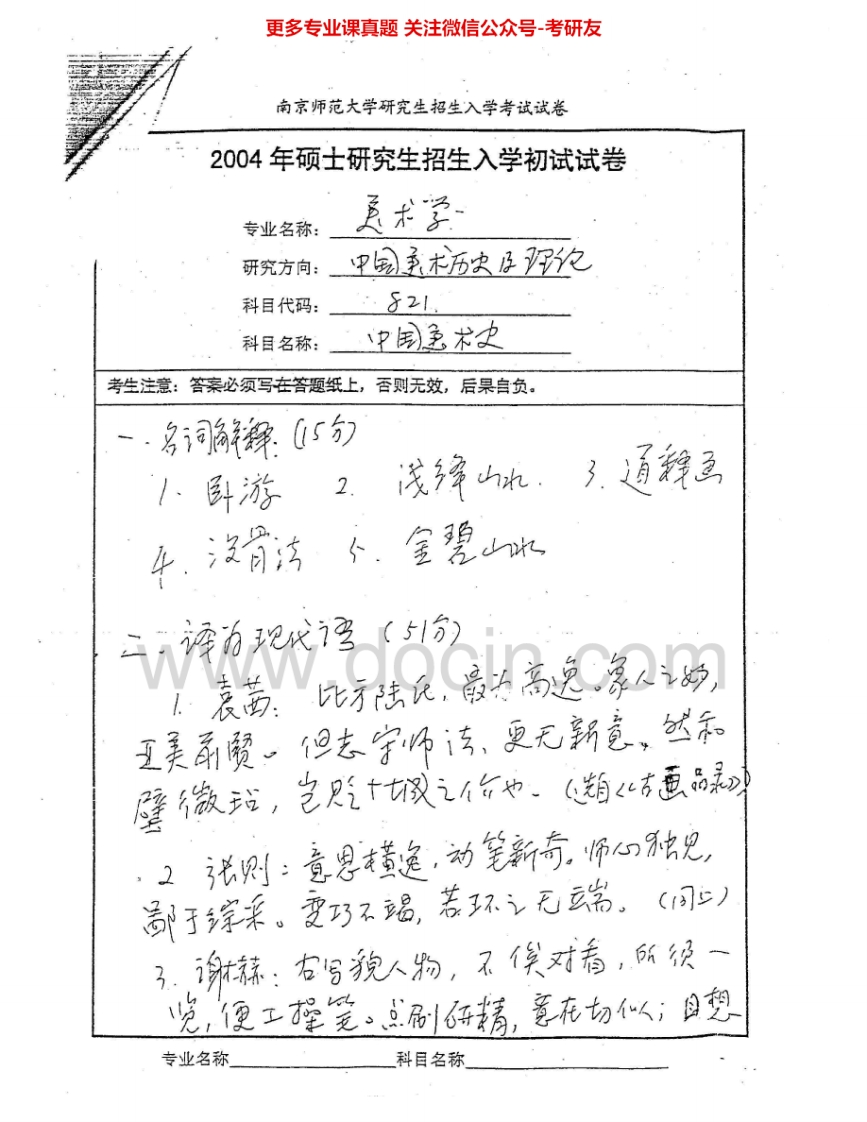 更多专业课真题 关注微信公众号-考研友
南京师范大学研究生招生入学考试试卷
2004 年硕士研究生招生入学初试试卷
专业名称： 美术学
研究方向： 中国美术历史及理论
科目代码： 821.
科目名称： 中国美术史
考生注意：答案必须写在答题纸上，否则无效，后果自负。
一. 名词解释: (15分)
1. 卧游 2. 浅绛山水. 3. 道释画
4. 没骨法 5. 金碧山水
二. 译为现代语 (51分)
www.docin.com
1. 袁茜: 比方陆氏, 最为高逸。象人之妙,
亚美前贤。但志守师法、更无新意。然和
璧微玷, 岂贬十城之价也。(选自《古画品录》)
2 张则: 意思横逸, 动笔新奇。师心独见,
鄙于综采。变巧不竭, 若环之无端。(同上)
3. 谢赫: 右写貌人物, 不俟对看, 所须一
览, 便工操笔。点刷研精, 意在切似; 目想
专业名称 科目名称